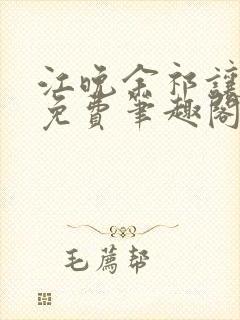 江晚余祁让
免费笔趣阁
毛荐帮